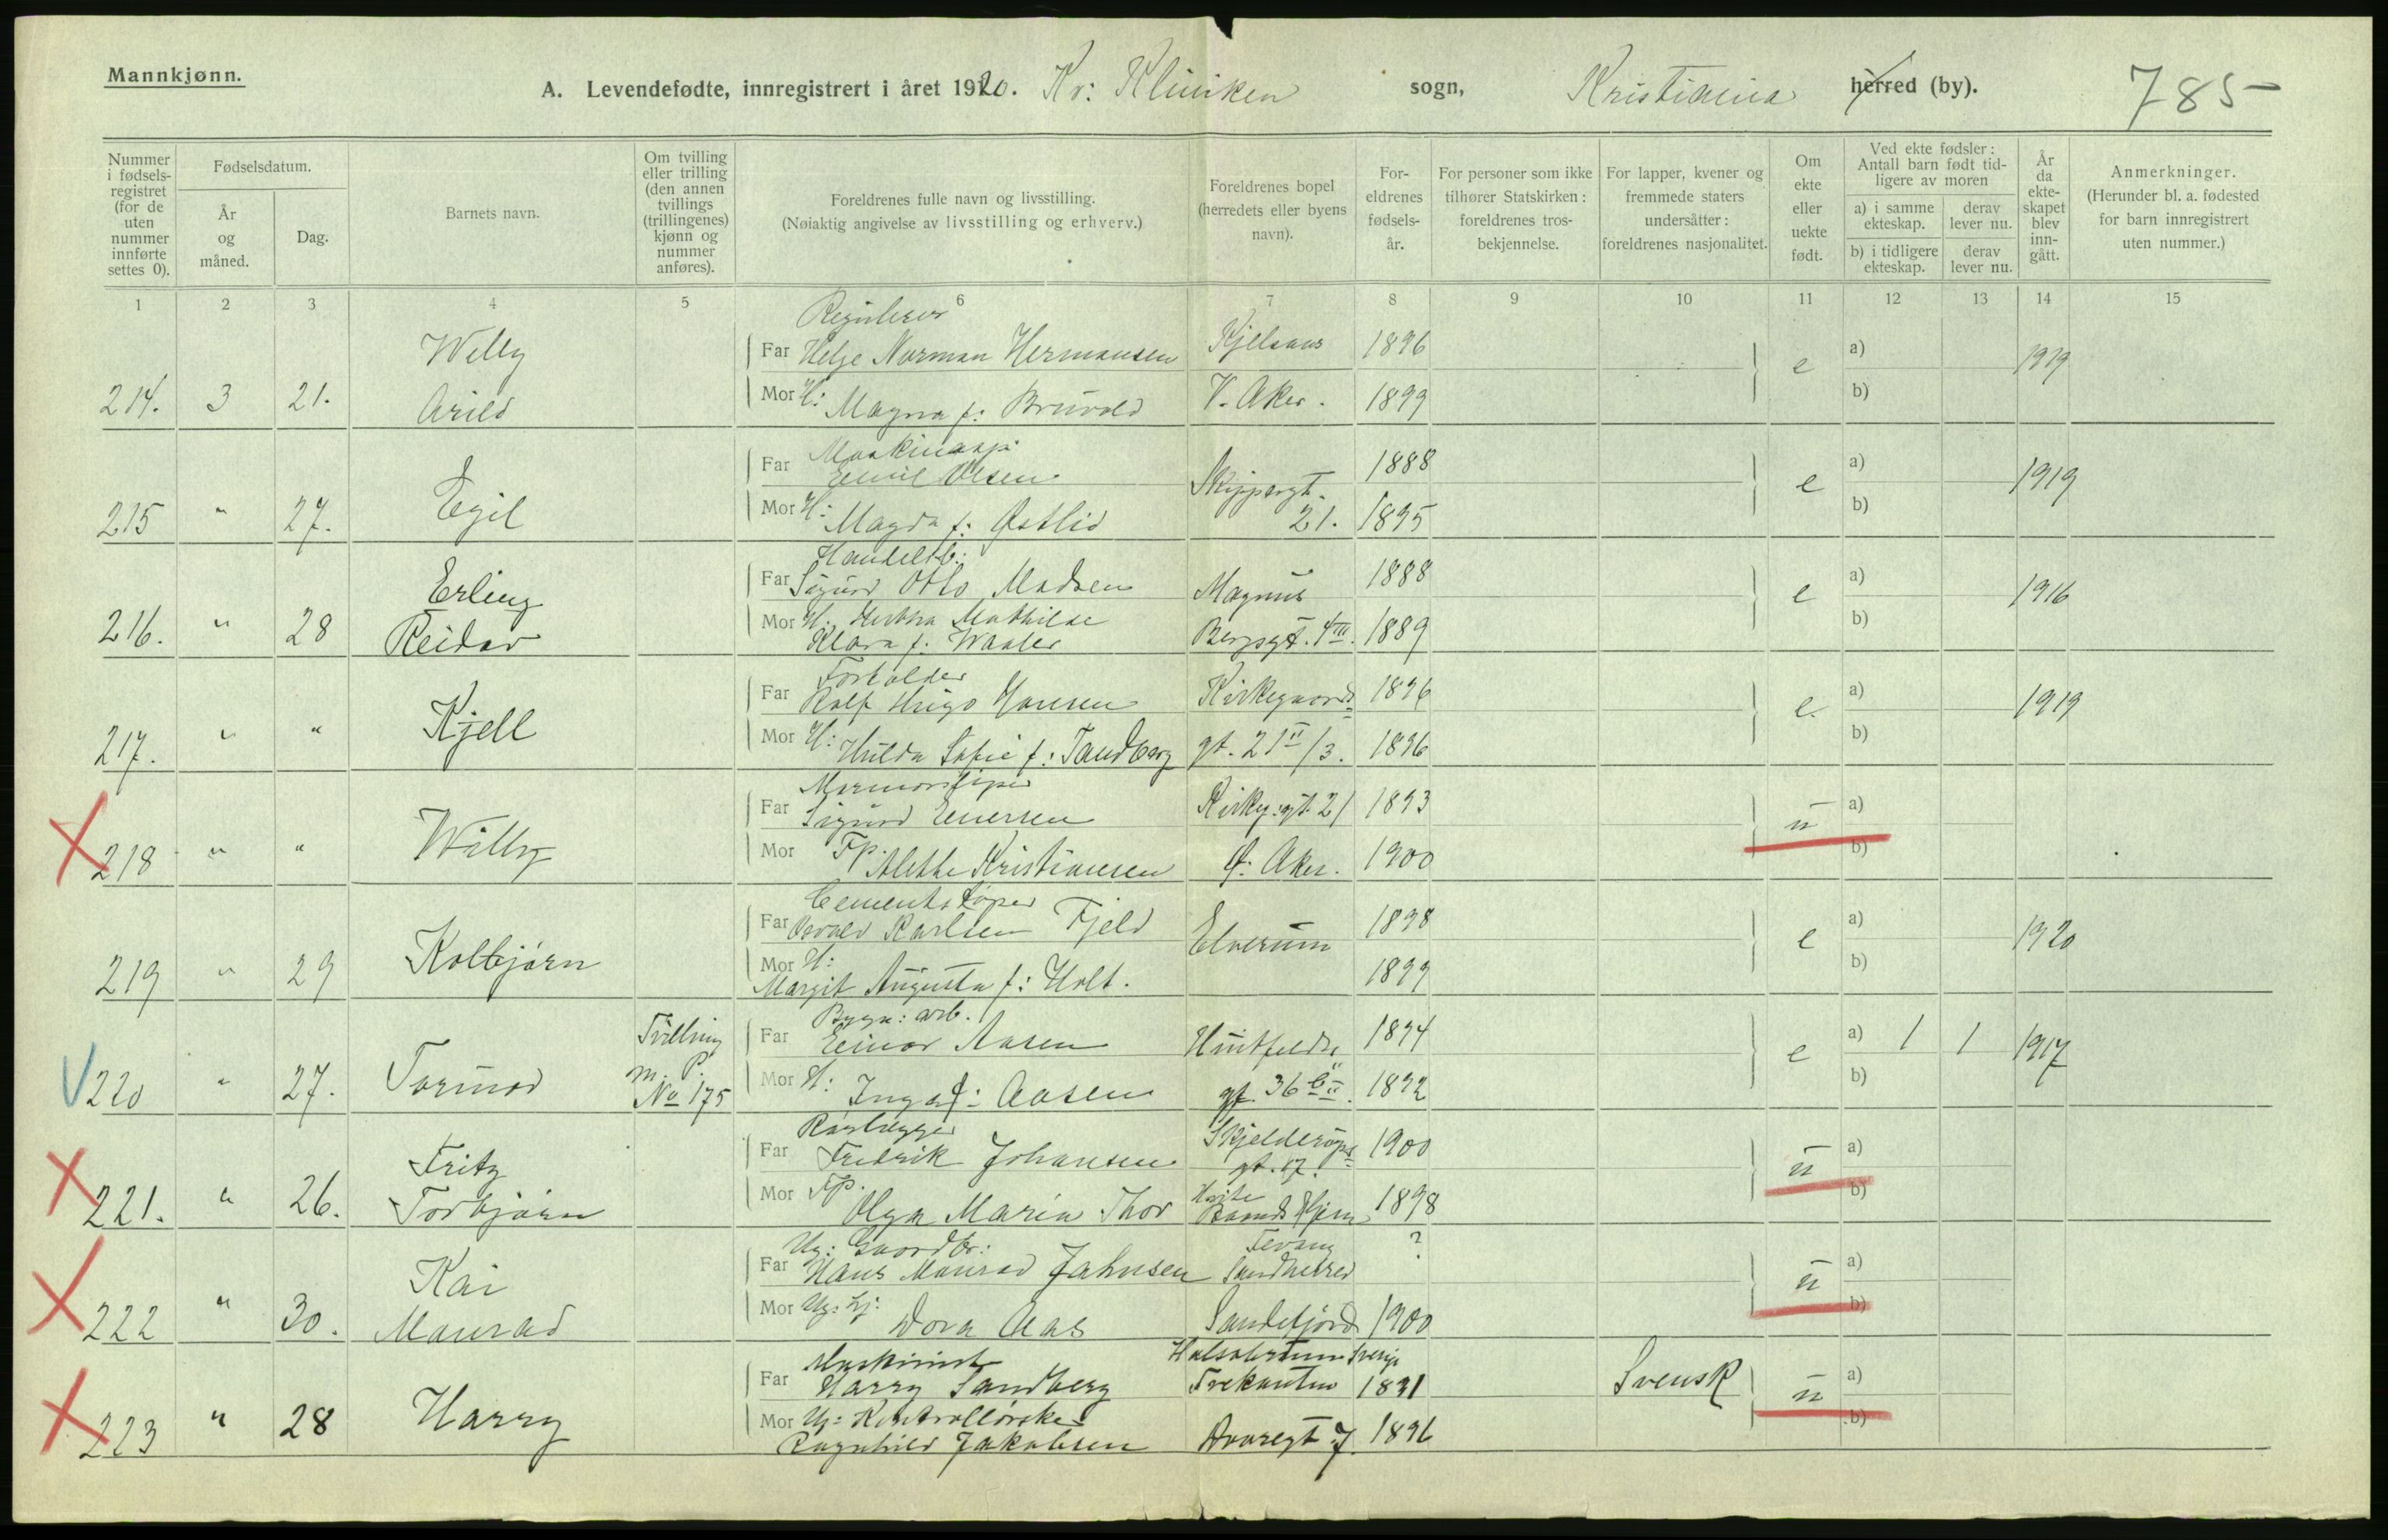 Mannkjønn.
A. Levendefødte, innregistrert i året 1920. Kv: Kliniken sogn, Kristiania herred (by). 785-
Nummer i fødsels-registret (for de uten nummer innførte settes 0).
Fødselsdatum.
År og måned.
Dag.
Barnets navn.
Om tvilling eller trilling (den annen tvillings (trillingenes) kjønn og nummer anføres).
Foreldrenes fulle navn og livsstilling.
(Nøiaktig angivelse av livsstilling og erhverv.)
Foreldrenes bopel (herredets eller byens navn).
For-eldrenes fødsels-år.
For personer som ikke tilhører Statskirken: foreldrenes tros-bekjennelse.
For lapper, kvener og fremmede staters undersåtter: foreldrenes nasjonalitet.
Om ekte eller uekte født.
Ved ekte fødsler: Antall barn født tid-ligere av moren
a) i samme ekteskap.
derav lever nu.
b) i tidligere ekteskap.
derav lever nu.
År da ekte-skapet blev inn-gått.
Anmerkninger.
(Herunder bl. a. fødested for barn innregistrert uten nummer.)
1 2 3 4 5 6 7 8 9 10 11 12 13 14 15
Willy
Far Helge Norman Hermansen Kjelsaas 1896 e a) 1919
214. 3 21. Arild
Mor H: Magna f: Bruvold V. Aker. 1899 b)
Far Emil Olsen 1888 a)
215 " 27. Egil Skippergt. e 1919
Mor H: Magda f: Østlid 21. 1895 b)
Handelsb:
Erling Far Sigurd Otto Madsen Magnus 1888 e a) 1916
216. " 28 Reidar
Mor H. Mathilde
Klara f: Waaler Bergsgt. 4 III. 1889 b)
Far Rolf Hugo Hansen Kirkegaards 1896 e. a) 1919
217. " " Kjell
Mor H: Hulda Sofie f: Tandberg gt. 21 II/3. 1896 b)
Far Sigurd Kirkeg:gt. 21 1893 u a)
218 " " Willy
Mor Fp. Alethe Kristiansen Ø. Aker. 1900 b)
Cementstøper
Far Osvald Karlsen Fjeld Elverum 1898 e a) 1920
219 " 29 Kolbjørn
Mor H:
Margit Augusta f: Holt. 1899 b)
Bygn: arb.
Tvilling Far Einar Aasen Huitfeldts 1894 e a) 1 1 1917
220 " 27. Tormod m. P. No 175
Mor H: Inga f: Aasen gt. 36 b II. 1892 b)
Rørlægger
Fritz Far Fredrik Johansen Skjelderups gt. 17. 1900 u a)
221. " 26. Torbjørn
Mor Fp. Olga Maria Thor Hvite Baands Hjem 1898 b)
Ug: Gaardbr:
Kai Far Hans Monrad Jahnsen Sandherred ? u a)
222 " 30. Monrad
Mor Ug: Dora Aas Sandefjord 1900 b)
Maskinist
Far Harry Sandberg Trekanten Sverige 1891 Svensk u a)
223 " 28 Harry
Mor Ug: Kontrollørske
Ragnhild Jakobsen 7. 1896 b)